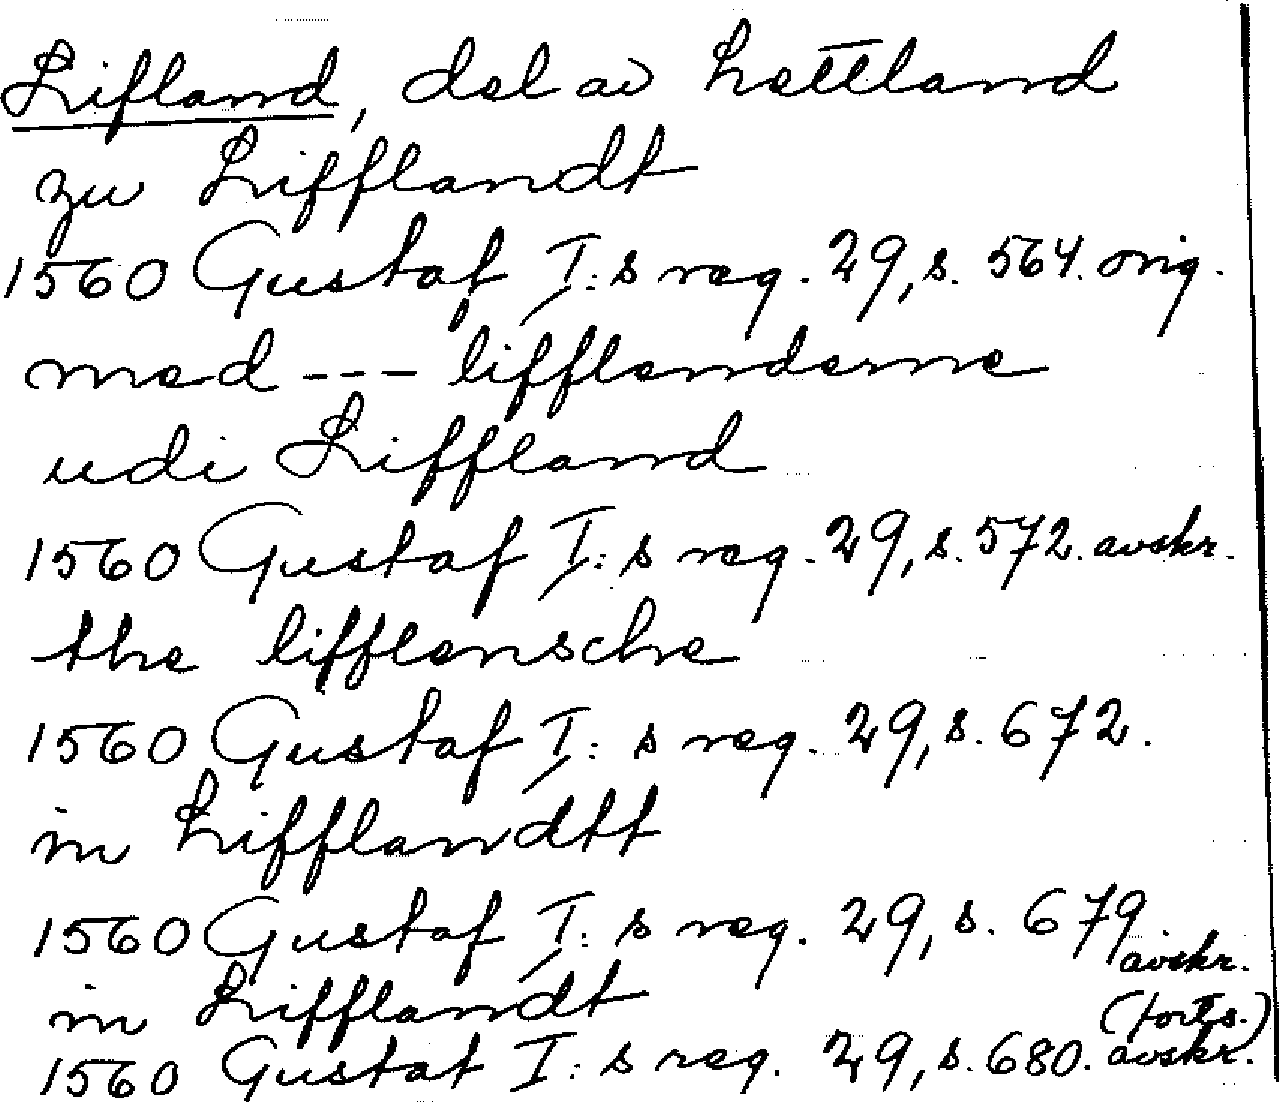 Lifland, del av Lettland
zu Lifflandt
1560 Gustaf I:s reg. 29, s. 564. orig.
med --- lifflenderne
udi Liffland
1560 Gustaf I:s reg. 29, s. 572. avskr.
the lifflensche
1560 Gustaf I:s reg. 29, s. 672.
in Lifflandtt
1560 Gustaf I:s reg. 29, s. 679 avskr.
in Lifflandt
(forts.)
1560 Gustaf I:s reg. 29, s. 680. avskr.